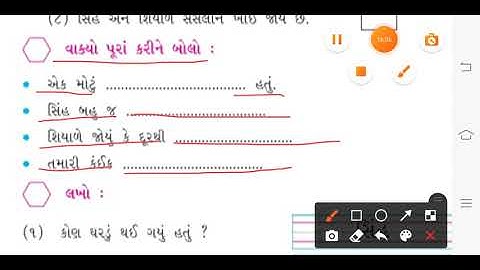 (૮) સિંહ અને શિયાળ સસલાને ખાઈ જાય છે.
વાક્યો પૂરાં કરીને બોલો :
• એક મોટું .................................. હતું.
• સિંહ બહુ જ ..................................
• શિયાળે જોયું કે દૂરથી ..............................
• તમારી કંઈક ..................................
લખો :
(૧) કોણ ઘરડું થઈ ગયું હતું ?